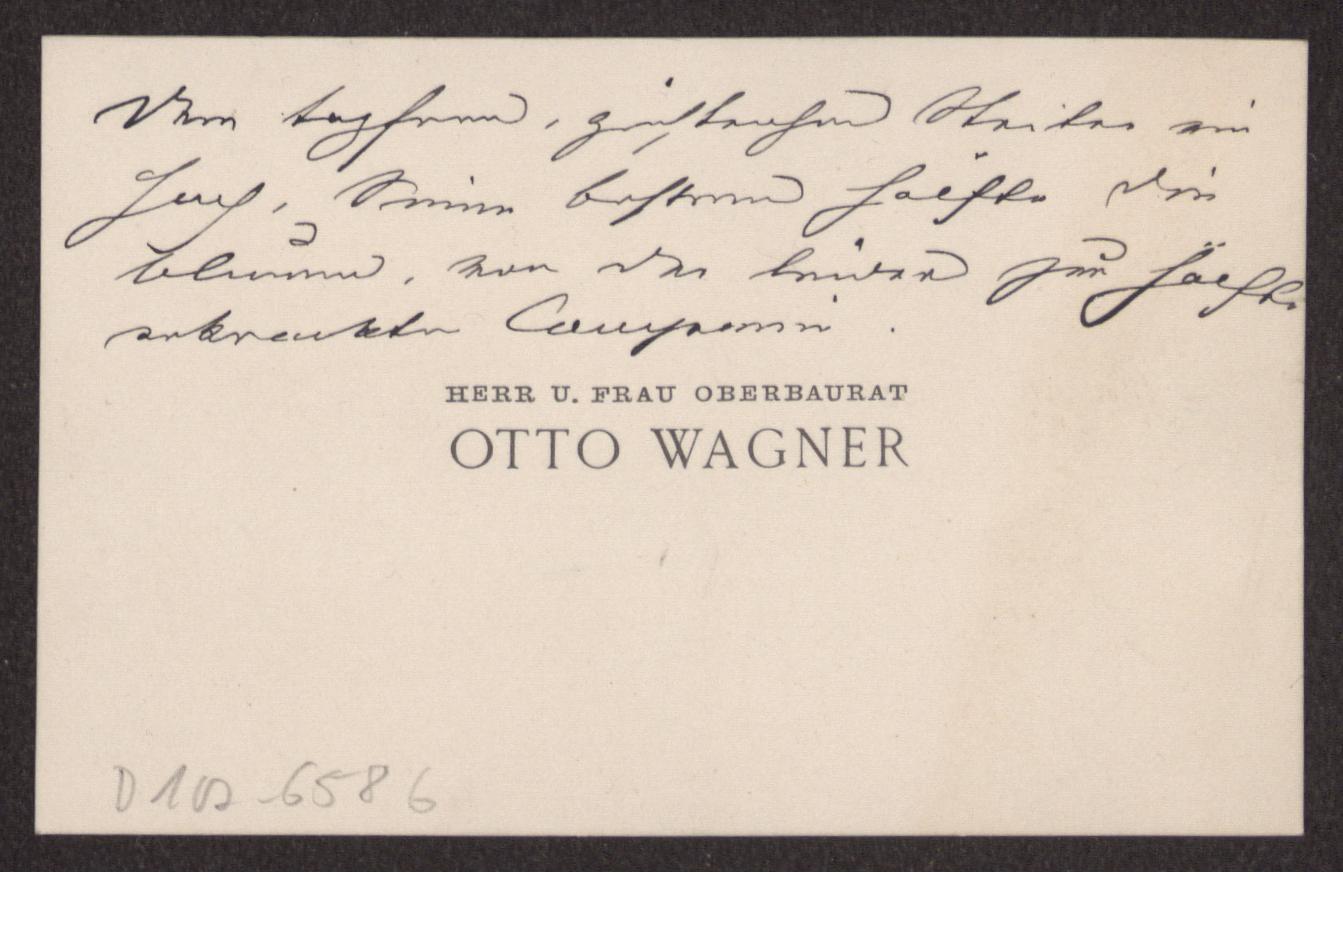 Dem tapferen, geistreichen Streiter ein
Hoch, Seiner besseren Hälfte die
Blumen, von der leider zur Hälfte
erkrankten Compagnie.
HERR U. FRAU OBERBAURAT
OTTO WAGNER
6586